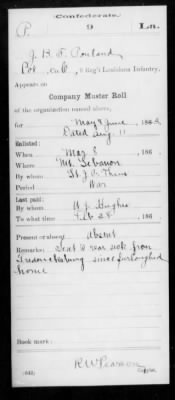 Confederate.
P. 9 La.
J. B. F.
Co. C, 9 Reg't Louisiana Infantry.
Appears on
Company Muster Roll
of the organization named above,
for May & June, 186
Dated Aug. 11
Enlisted:
When Mar 8, 186
Where Mt. Lebanon
By whom
Period War
Last paid:
By whom Hughes
To what time Feb 28, 186
Present or absent absent
Remarks: Sent to rear sick from
Fredericksburg since furloughed
home
Book mark:
(642) R W Pearson
Copyist.